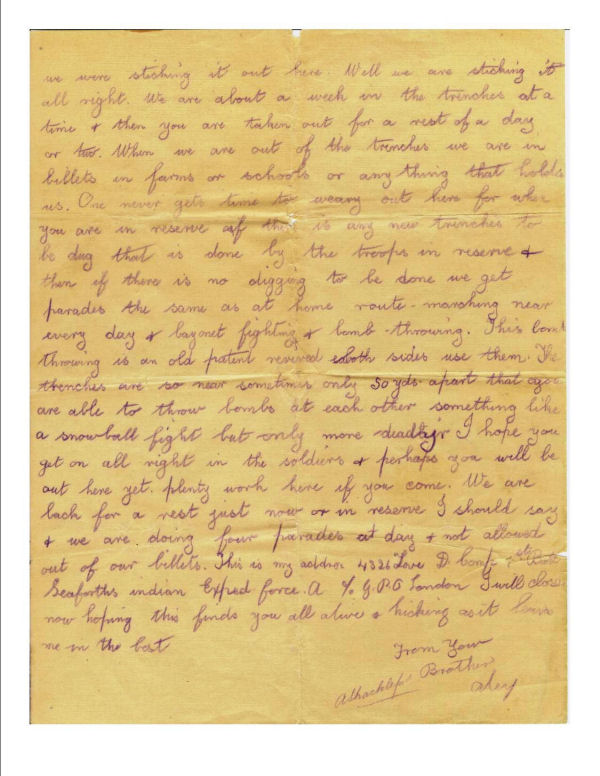 we were sticking it out here. Well we are sticking it
all right. We are about a week in the trenches at a
time & then you are taken out for a rest of a day
or two. When we are out of the trenches we are in
billets in farms or schools or any thing that holds
us. One never gets time to weary out here for when
you are in reserve if there is any new trenches to
be dug that is done by the troops in reserve &
then if there is no digging to be done we get
parades the same as at home route-marching near
every day & bayonet fighting & bomb-throwing. This bomb
throwing is an old patent revived both sides use them. The
trenches are so near sometimes only 50 yds apart that
are able to throw bombs at each other something like
a snowball fight but only more I hope you
get on all right in the soldiers & perhaps you will be
out here yet. plenty work here if you come. We are
back for a rest just now or in reserve I should say
& we are doing four parades at day & not allowed
out of our billets. This is my 4326 Love D Comp
Seaforths indian Exped force. A c/o G.P.O London I will close
now hoping this finds you all alive & kicking as it
me in the best
From Your
Brother